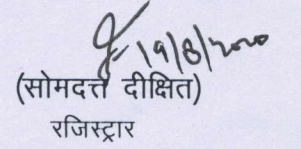 19/8/2020
(सोमदत्त दीक्षित)
रजिस्ट्रार